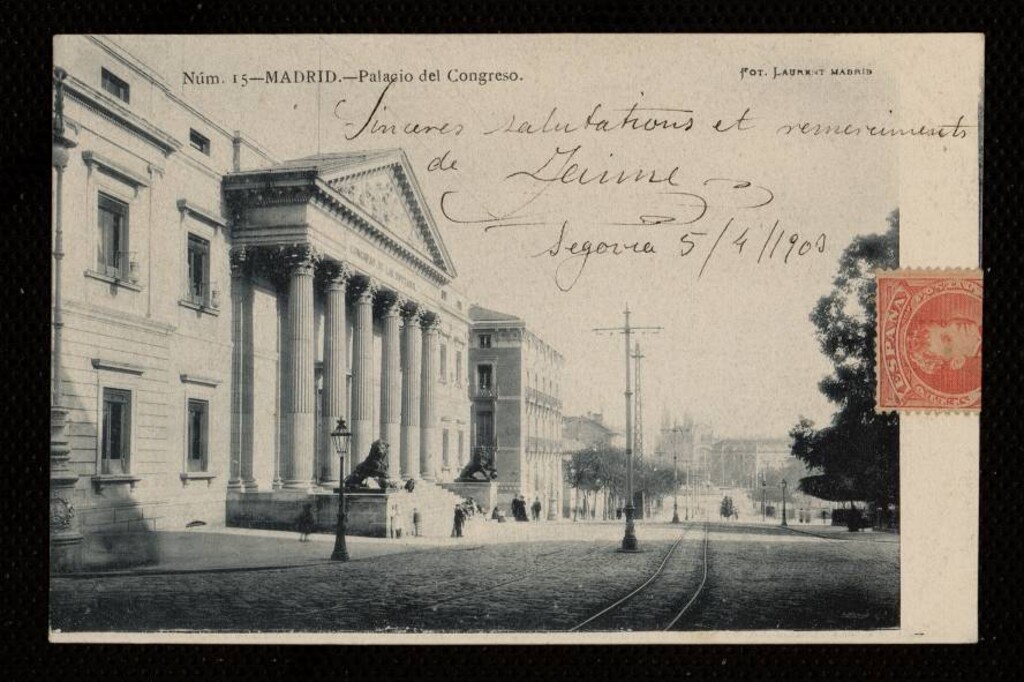 Núm. 15—MADRID.—Palacio del Congreso.
FOT. LAURENT MADRID
Sinceres salutations et remerciments
de Jaime
Segovia 5/4/1903
ESPAÑA